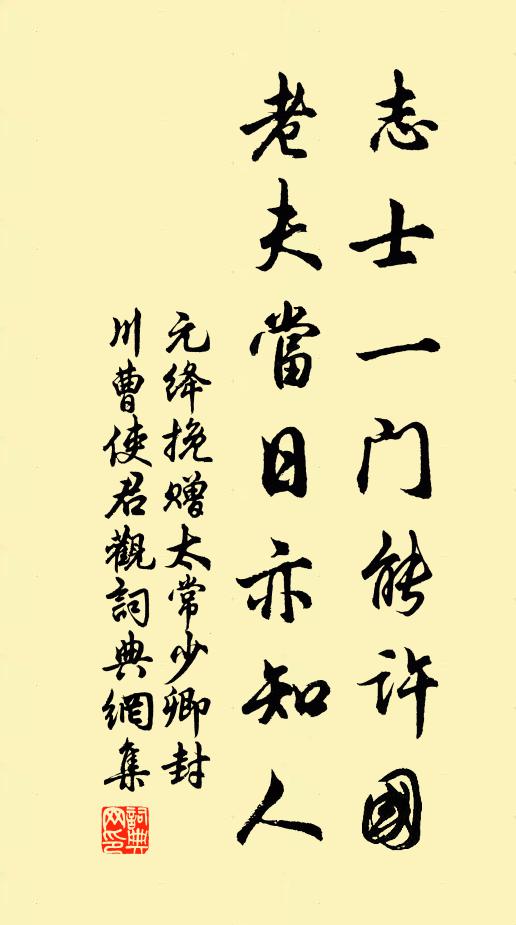 志士一門能許國
老夫當日亦知人
元絳挽贈太常少卿封
川曹使君觀詞典網集
詞典
网印